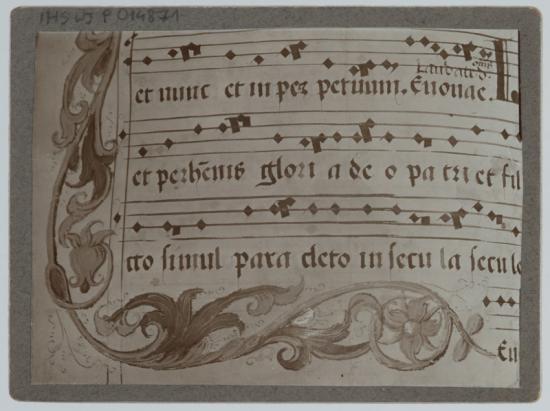 IHS WS P 014871
et nunc et in per petuum. Euouae.
et perhēnis glori a de o pa tri et fil
cto simul para cleto in secu la secule
Eu